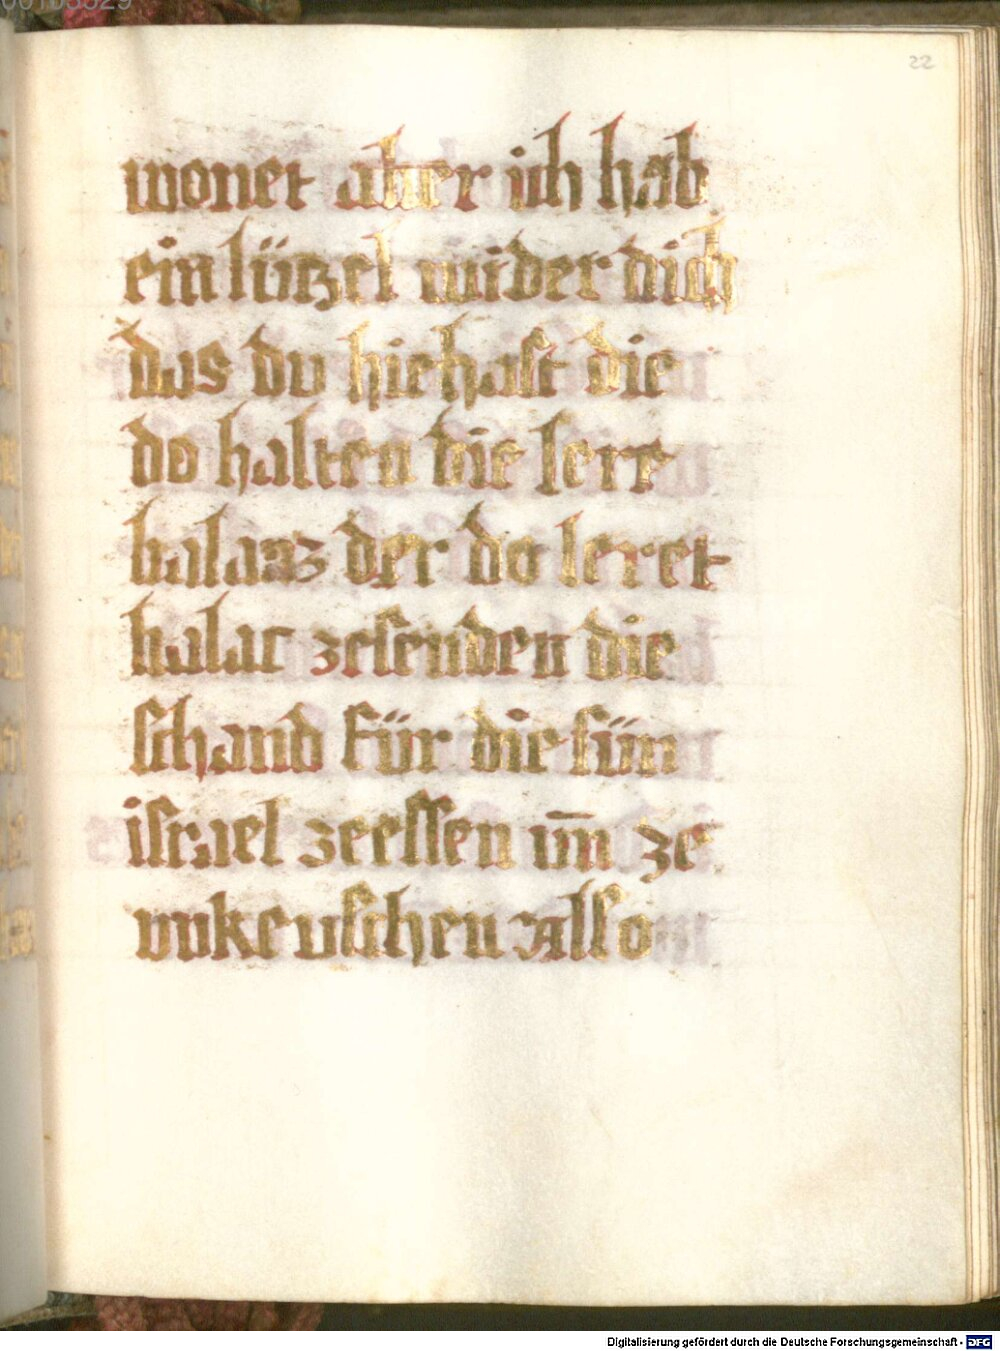 22
wonet aber ich hab
ein lützel wider dich
das du hie hast die
do halten die lere
balaaz der do leret
balac zesenden die
schand für die sün
israel zeessen vn̄ ze
vnkeuschen Also
Digitalisierung gefördert durch die Deutsche Forschungsgemeinschaft - DFG